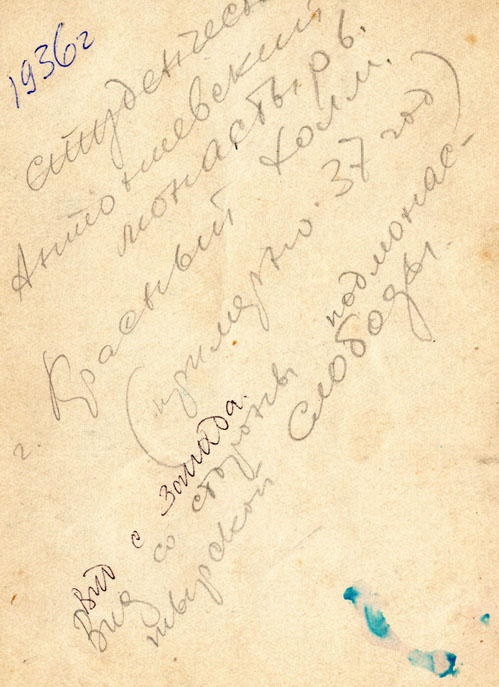 1936г
студенчес
Антониевский
монастырь.
г. Красный Холм.
(примерно 37 год)
Вид с запада.
Вид со стороны подмонас-
тырской слободы.